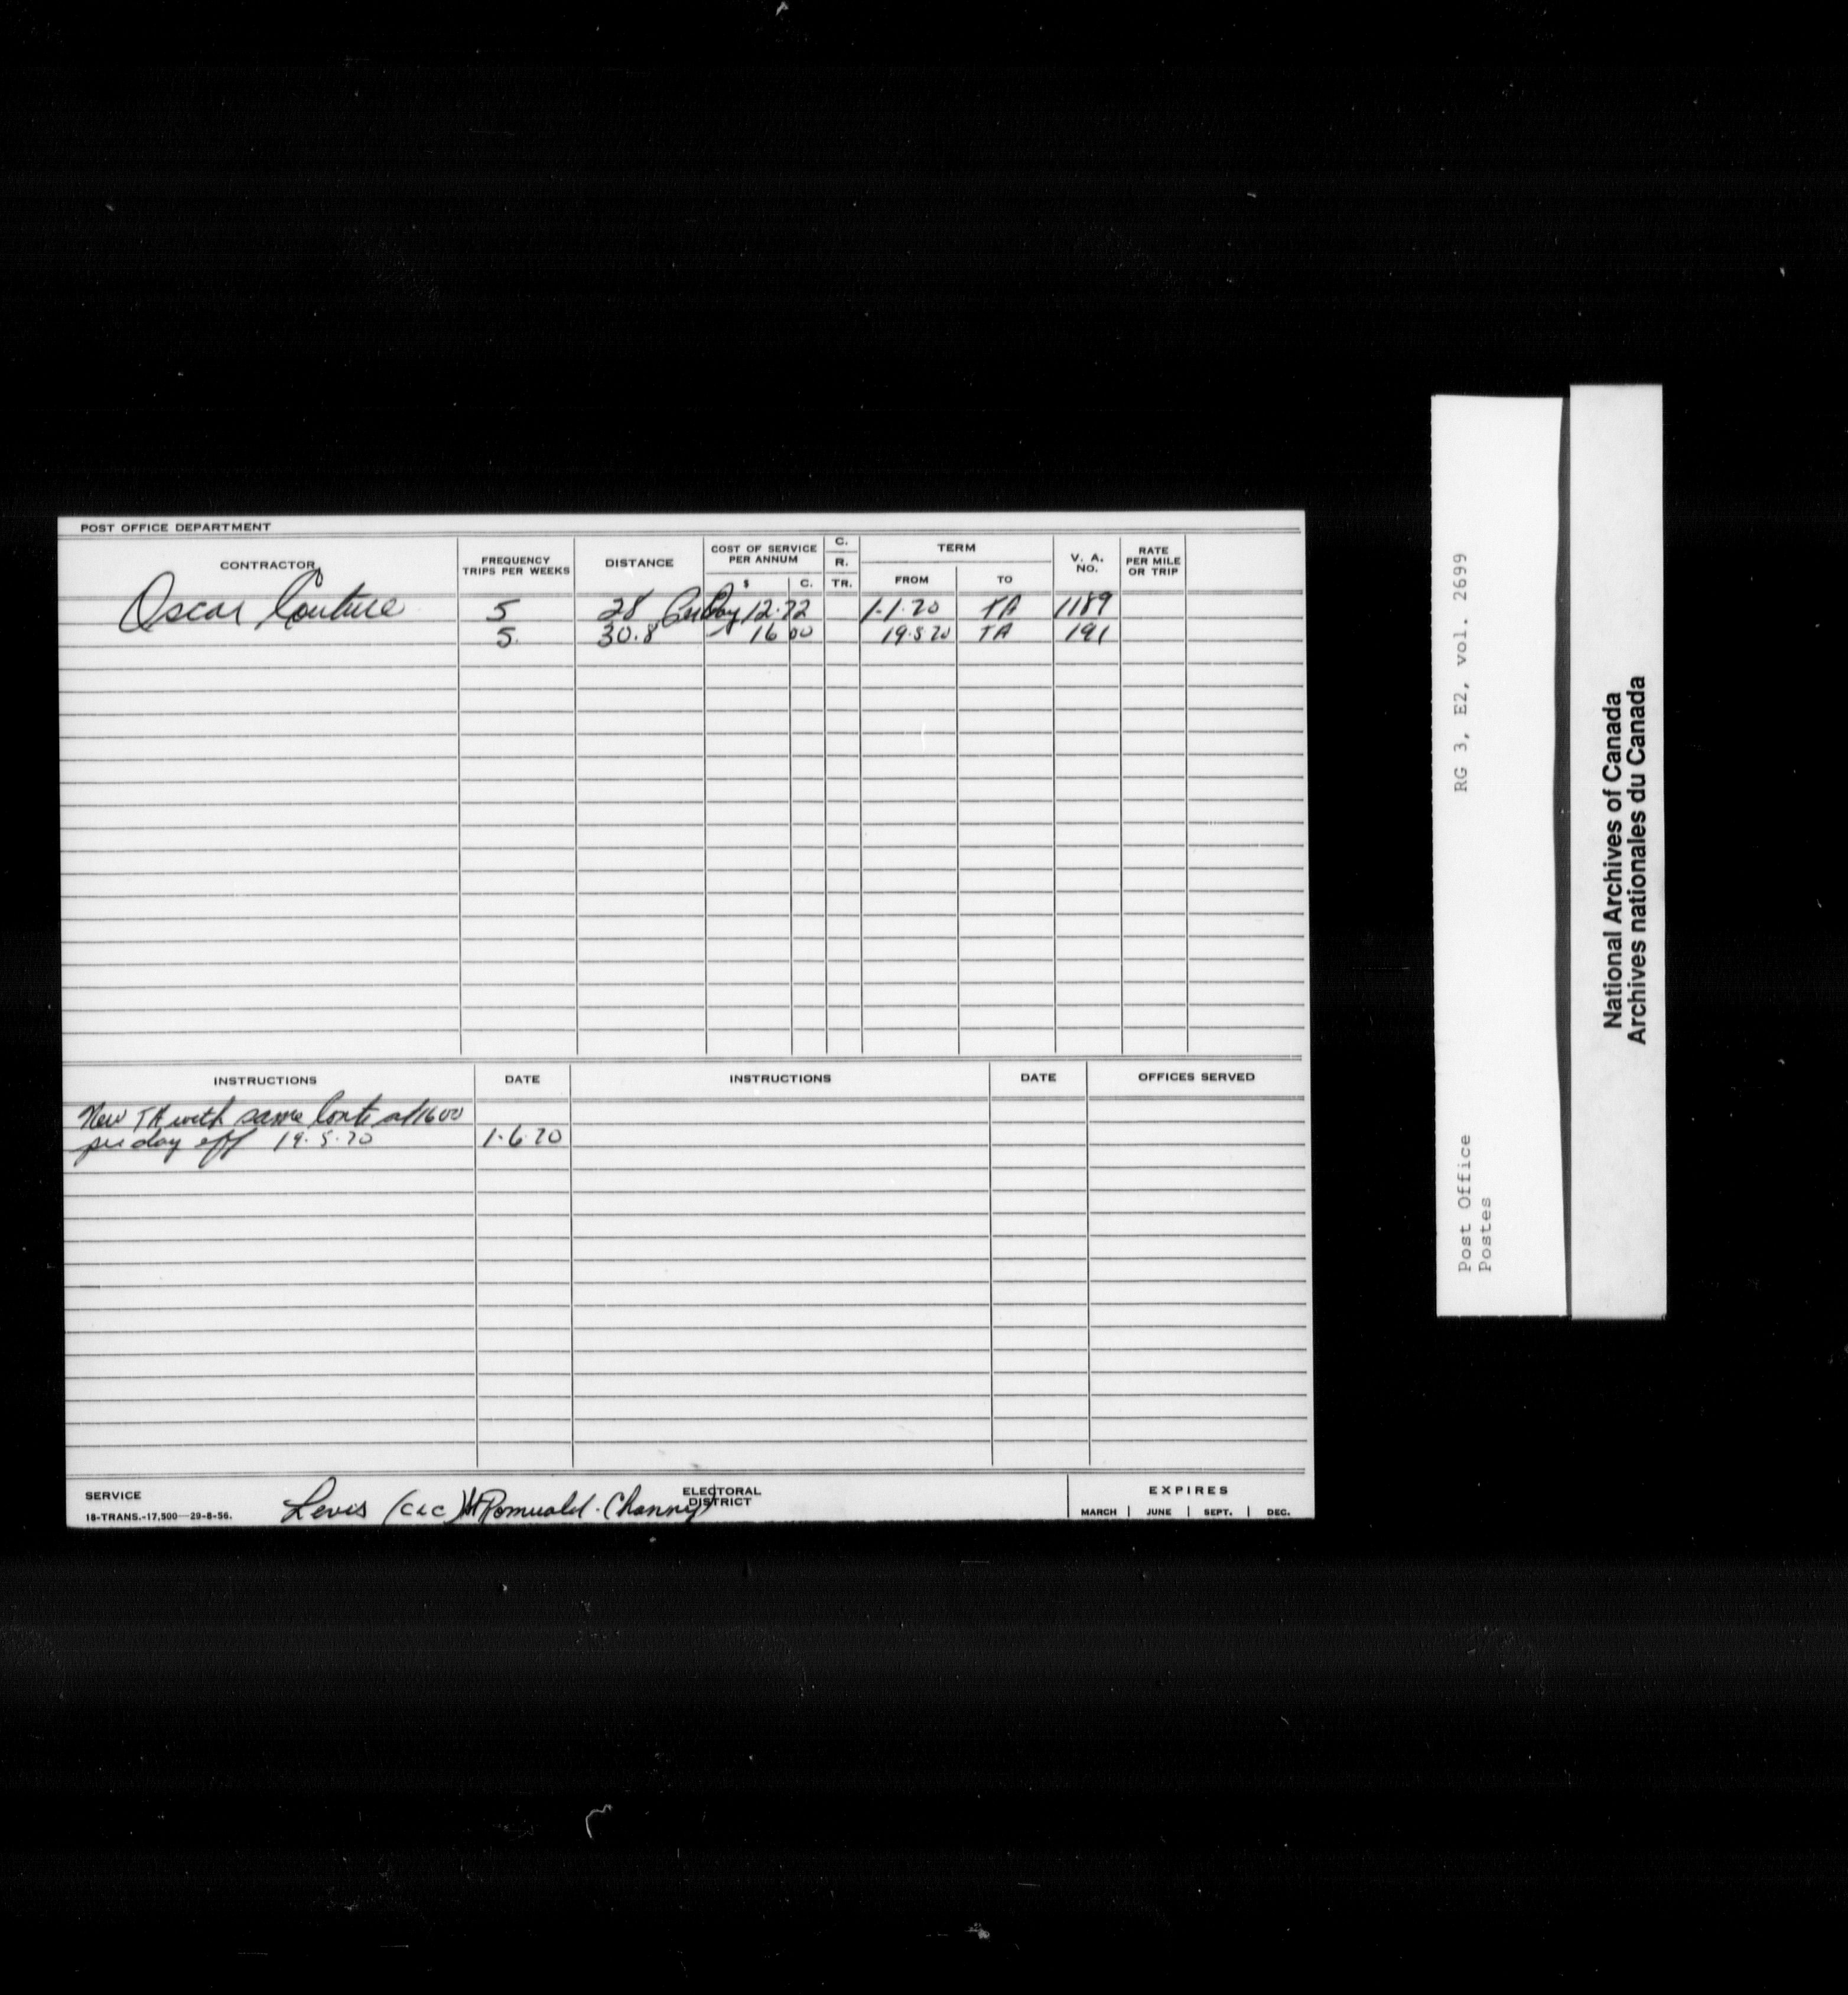 POST OFFICE DEPARTMENT
CONTRACTOR FREQUENCY TRIPS PER WEEKS DISTANCE COST OF SERVICE PER ANNUM $ C. C. R. TR. TERM FROM TO V. A. NO. RATE PER MILE OR TRIP
Oscar Couture 5 28 Per Day 12.72 1.1.70 TA 1189
5 30.8 " 16 00 19.5 70 TA 191
INSTRUCTIONS DATE INSTRUCTIONS DATE OFFICES SERVED
New TA with same Contr at 16 00
per day eff 19.5.70 1.6.70
SERVICE Levis (CLC) St Romuald. Charny ELECTORAL DISTRICT EXPIRES
18-TRANS.-17,500—29-8-56. MARCH JUNE SEPT. DEC.
Post Office RG 3, E2, vol. 2699
Postes
National Archives of Canada
Archives nationales du Canada